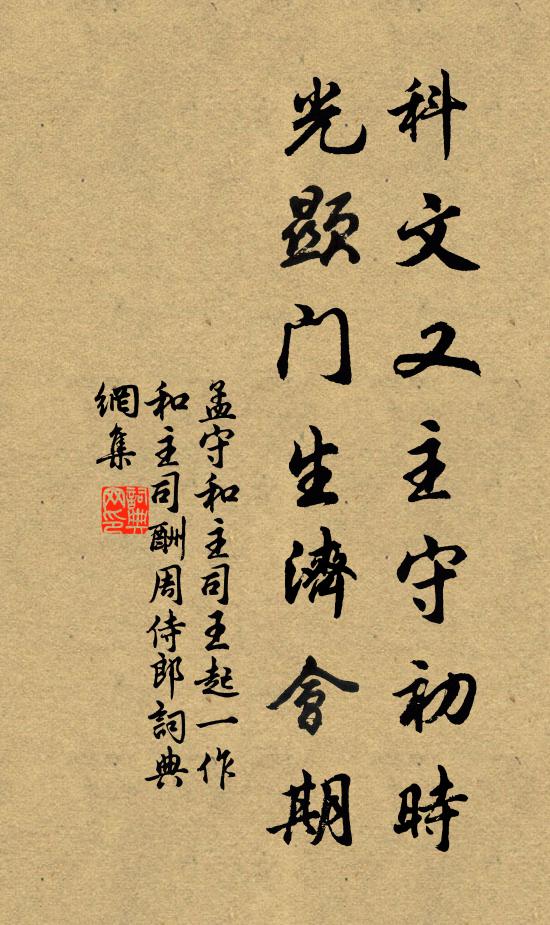 科文又主守初時
光顯門生濟會期
孟守和主司王起一作
和主司酬周侍郎詞典
網集
詞典
网印